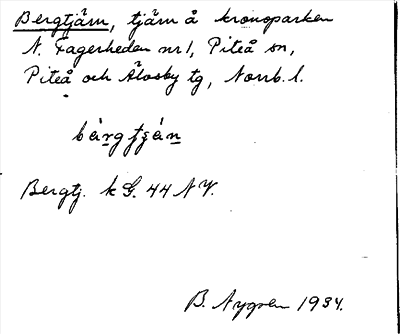 Bergtjärn, tjärn å kronoparken
N. Fagerheden nr 1, Piteå sn,
Piteå och Älvsby tg, Norrb. l.
bàrgtjän
Bergtj. k G. 44 N V.
B. Nygren 1934.